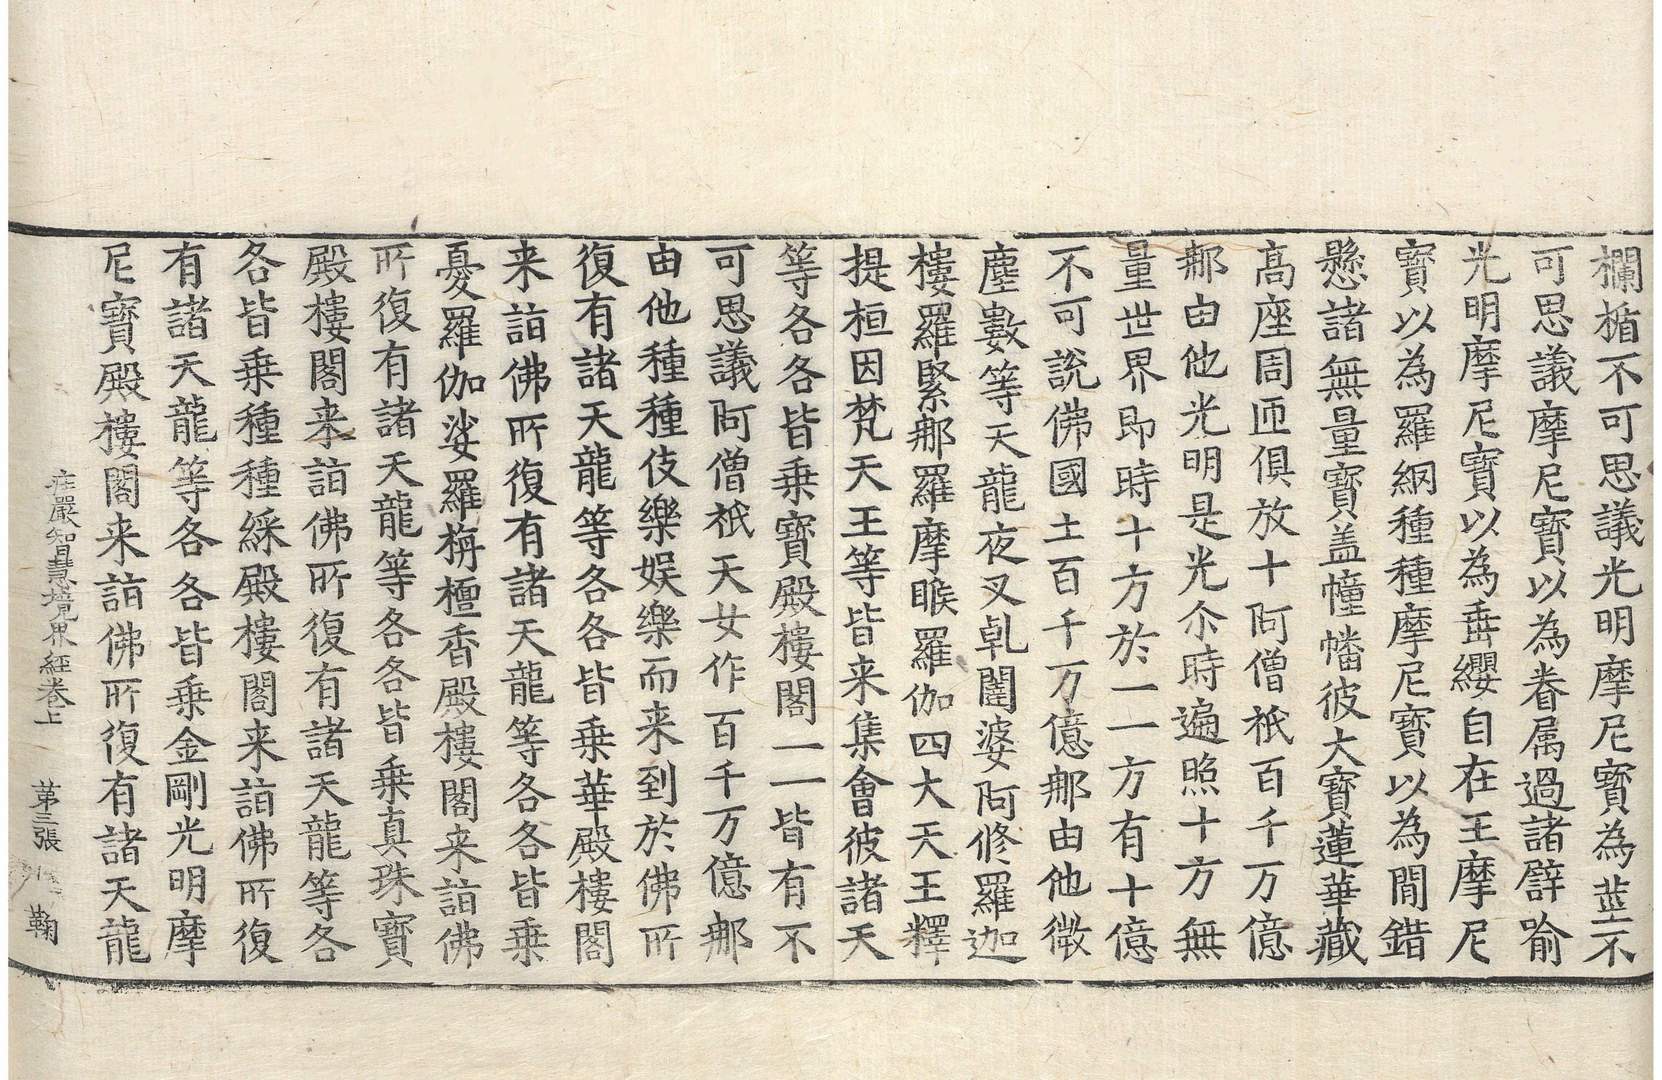 欄楯不可思議光明摩尼寶為莖不
可思議摩尼寶以為眷属過諸譬喻
光明摩尼寶以為垂纓自在王摩尼
寶以為羅網種種摩尼寶以為間錯
懸諸無量寶盖幢幡彼大寶蓮華藏
髙座周匝俱放十阿僧祇百千万億
那由他光明是光尒時遍照十方無
量世界即時十方於一一方有十億
不可說佛國土百千万億那由他微
塵數等天龍夜叉乹闥婆阿修羅迦
樓羅緊那羅摩睺羅伽四大天王釋
提桓因梵天王等皆来集會彼諸天
等各各皆乗寶殿樓閣一一皆有不
可思議阿僧祇天女作百千万億那
由他種種伎樂娱樂而来到於佛所
復有諸天龍等各各皆乗華殿樓閣
来詣佛所復有諸天龍等各各皆乗
憂羅伽娑羅栴檀香殿樓閣来詣佛
所復有諸天龍等各各皆乗真珠寶
殿樓閣来詣佛所復有諸天龍等各
各皆乗種種綵殿樓閣来詣佛所復
有諸天龍等各各皆乗金剛光明摩
尼寶殿樓閣来詣佛所復有諸天龍
庄嚴智慧境界経卷上 第三張 鞠